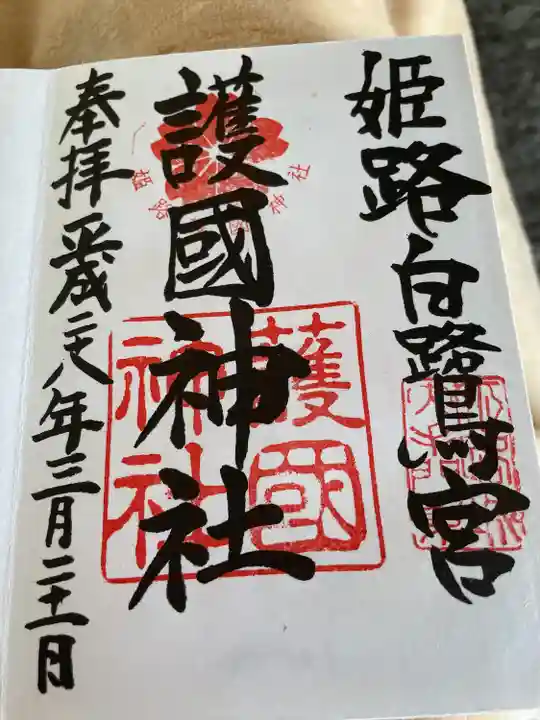 姫路白鷺宮
護國神社
奉拝平成二十八年三月二十一日
護國
神社